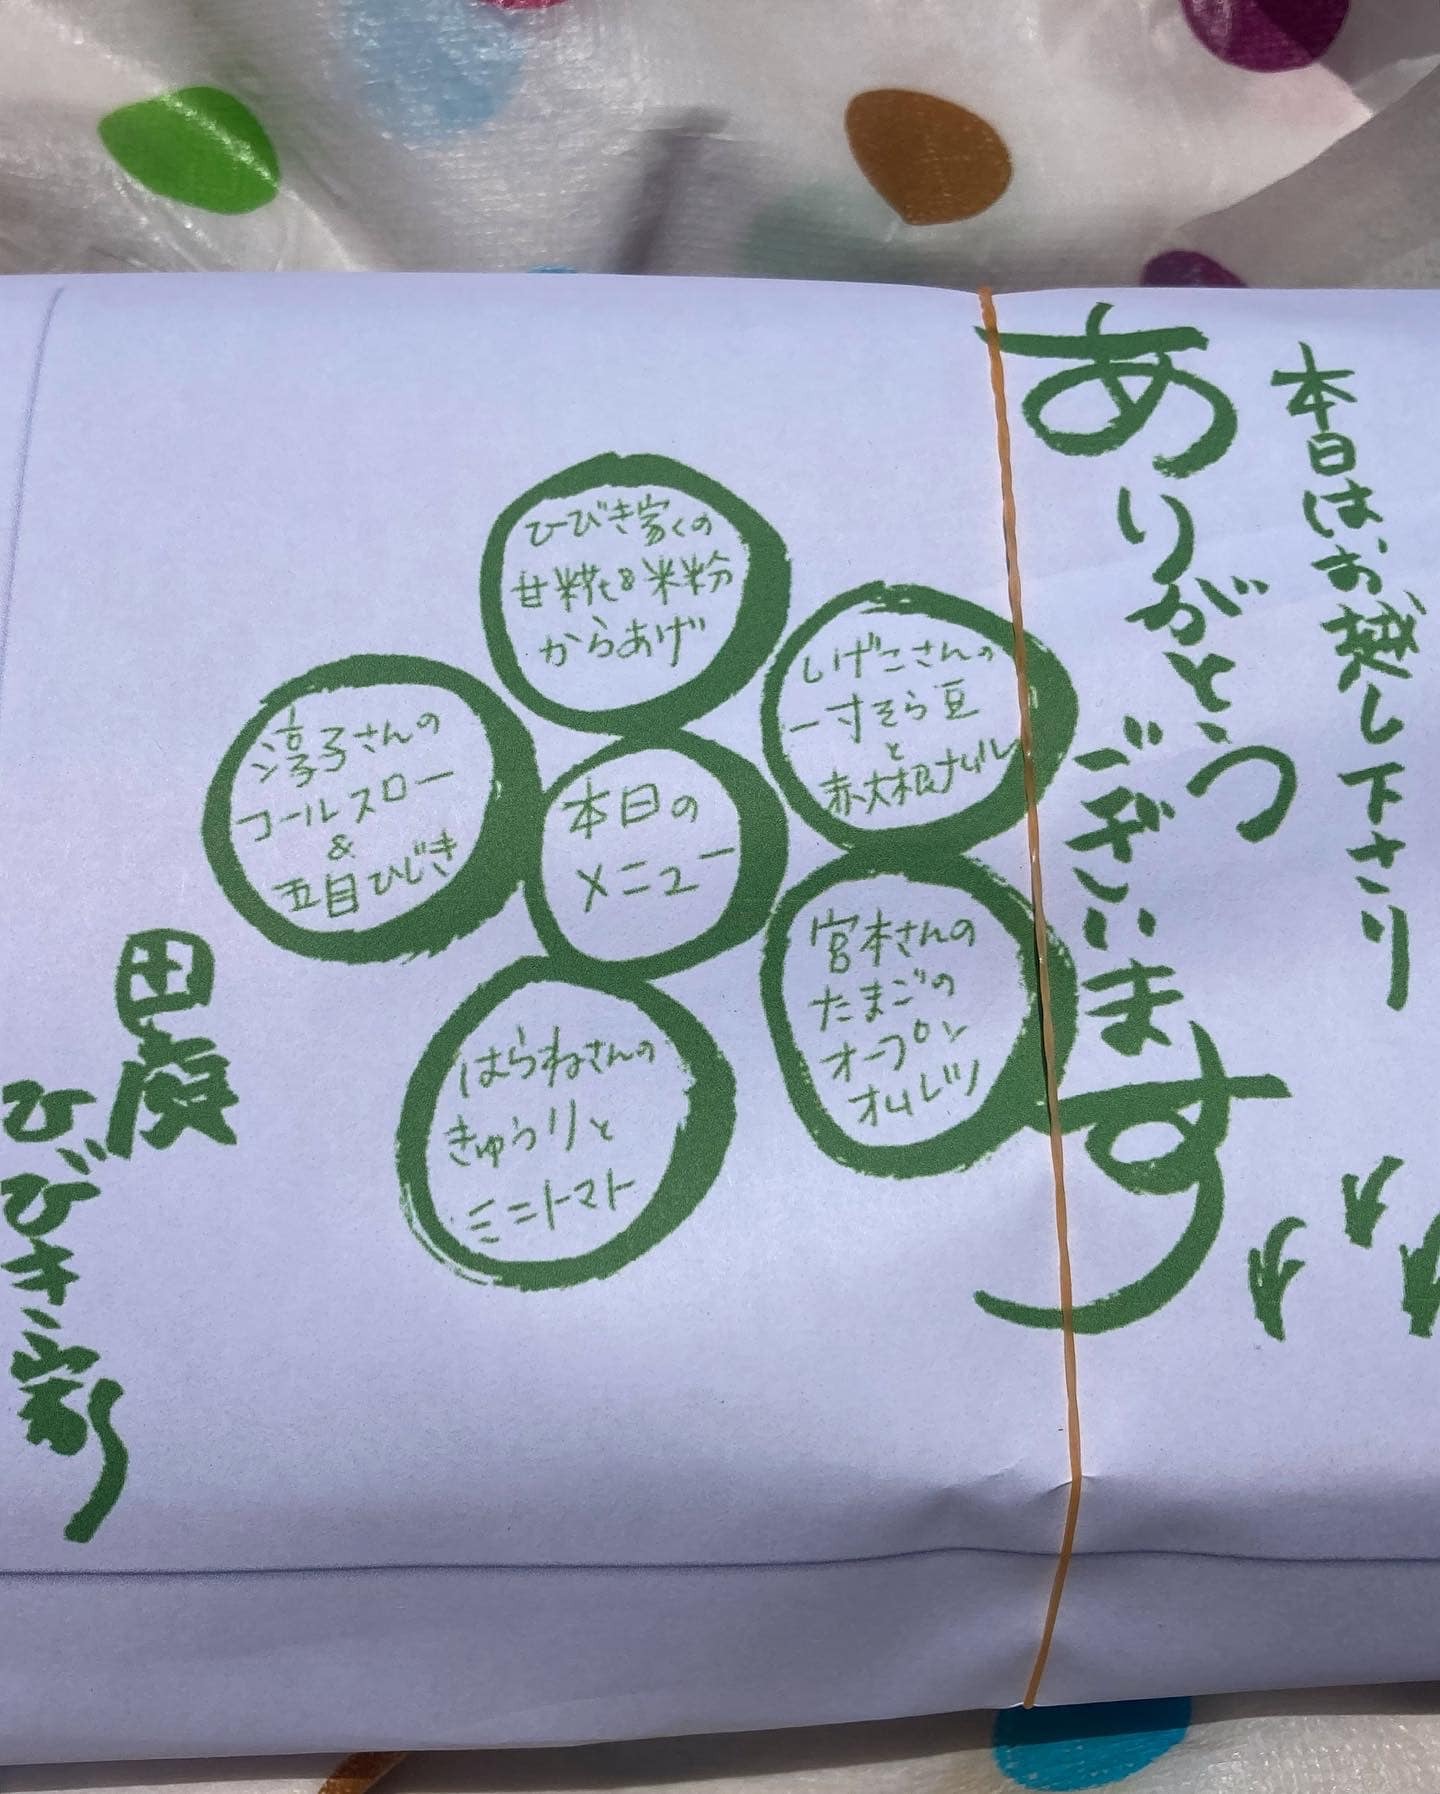 本日はお越し下さり
ありがとう
ございます
本日の
メニュー
ひびき家くの
甘糀&米粉
からあげ
しげこさんの
一寸そら豆
と
赤大根ナムル
宮本さんの
たまごの
オープン
オムレツ
はらねさんの
きゅうりと
ミニトマト
淳子さんの
コールスロー
&
五目ひじき
田庭
ひびき家